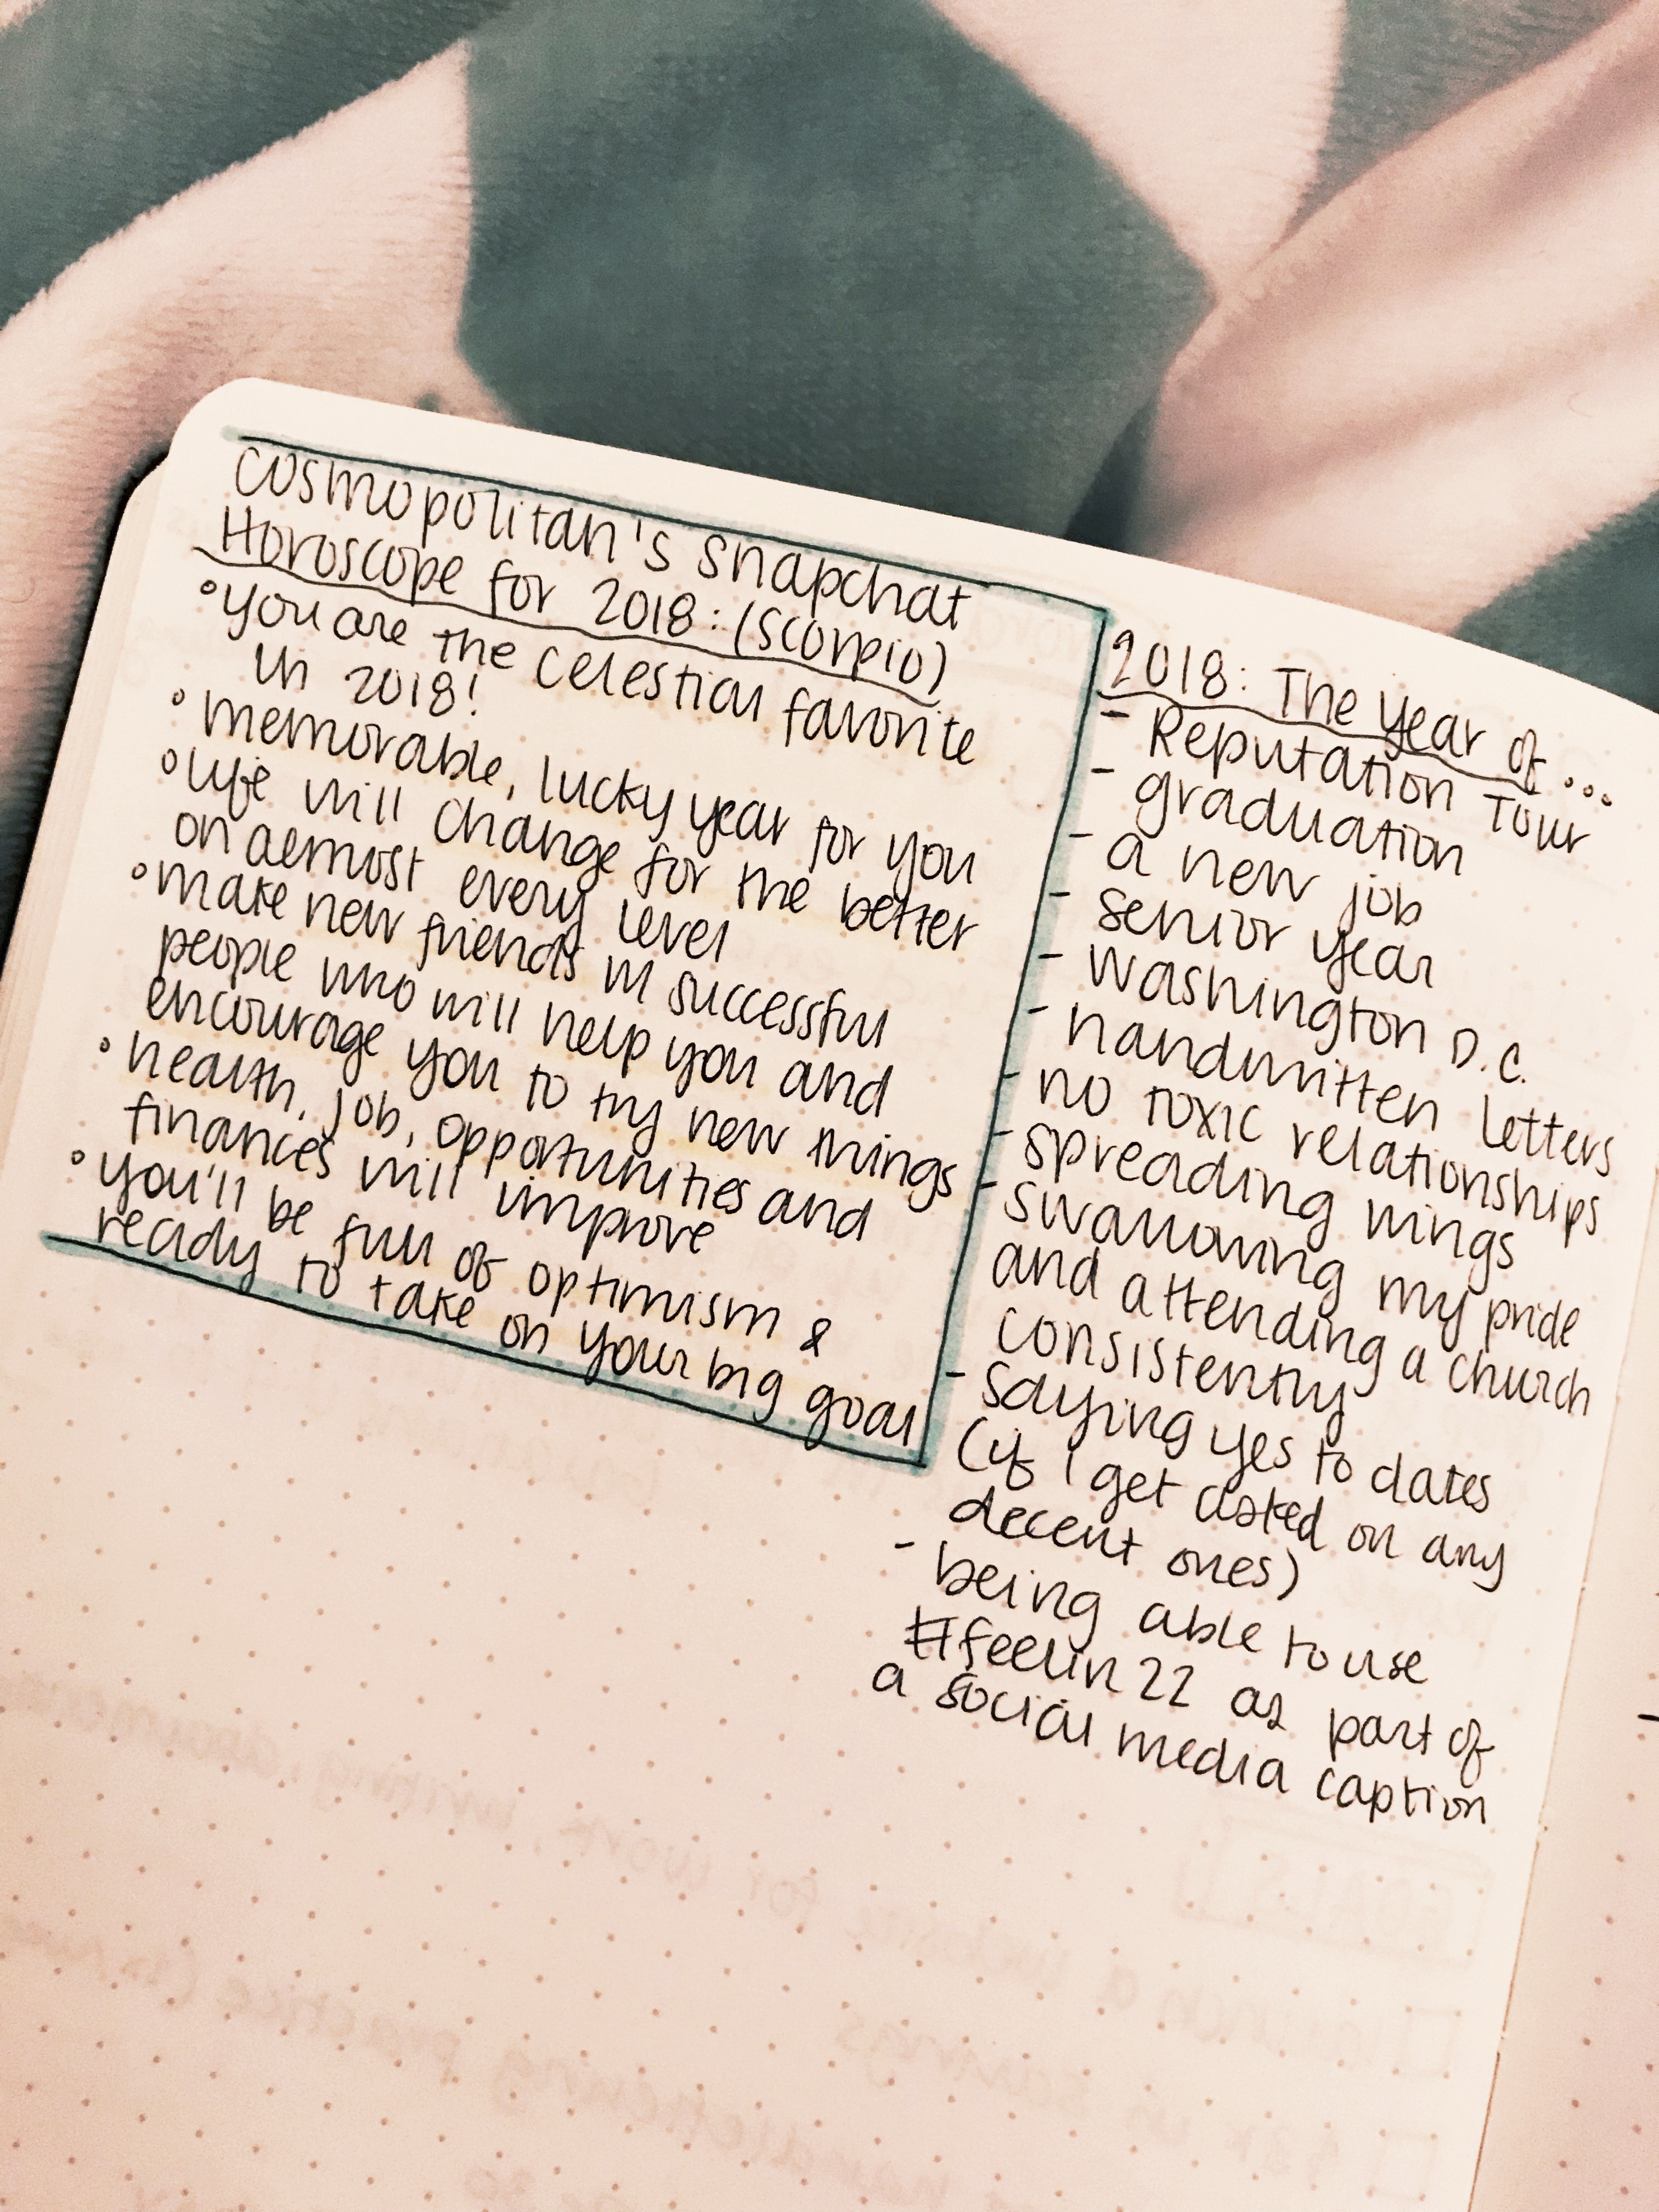 Cosmopolitan's Snapchat
Horoscope for 2018: (Scorpio)
• you are the celestial favorite
in 2018!
• memorable, lucky year for you
• life will change for the better
on almost every level
• make new friends in successful
people who will help you and
encourage you to try new things
• health, job, opportunities and
finances will improve
• you'll be full of optimism &
ready to take on your big goal
2018: The Year of...
- Reputation Tour
- graduation
- a new job
- senior year
- Washington D.C.
- handwritten letters
- no toxic relationships
- spreading wings
- swallowing my pride
and attending a church
consistently
- saying yes to dates
(if I get asked on any
decent ones)
- being able to use
#feelin22 as part of
a social media caption